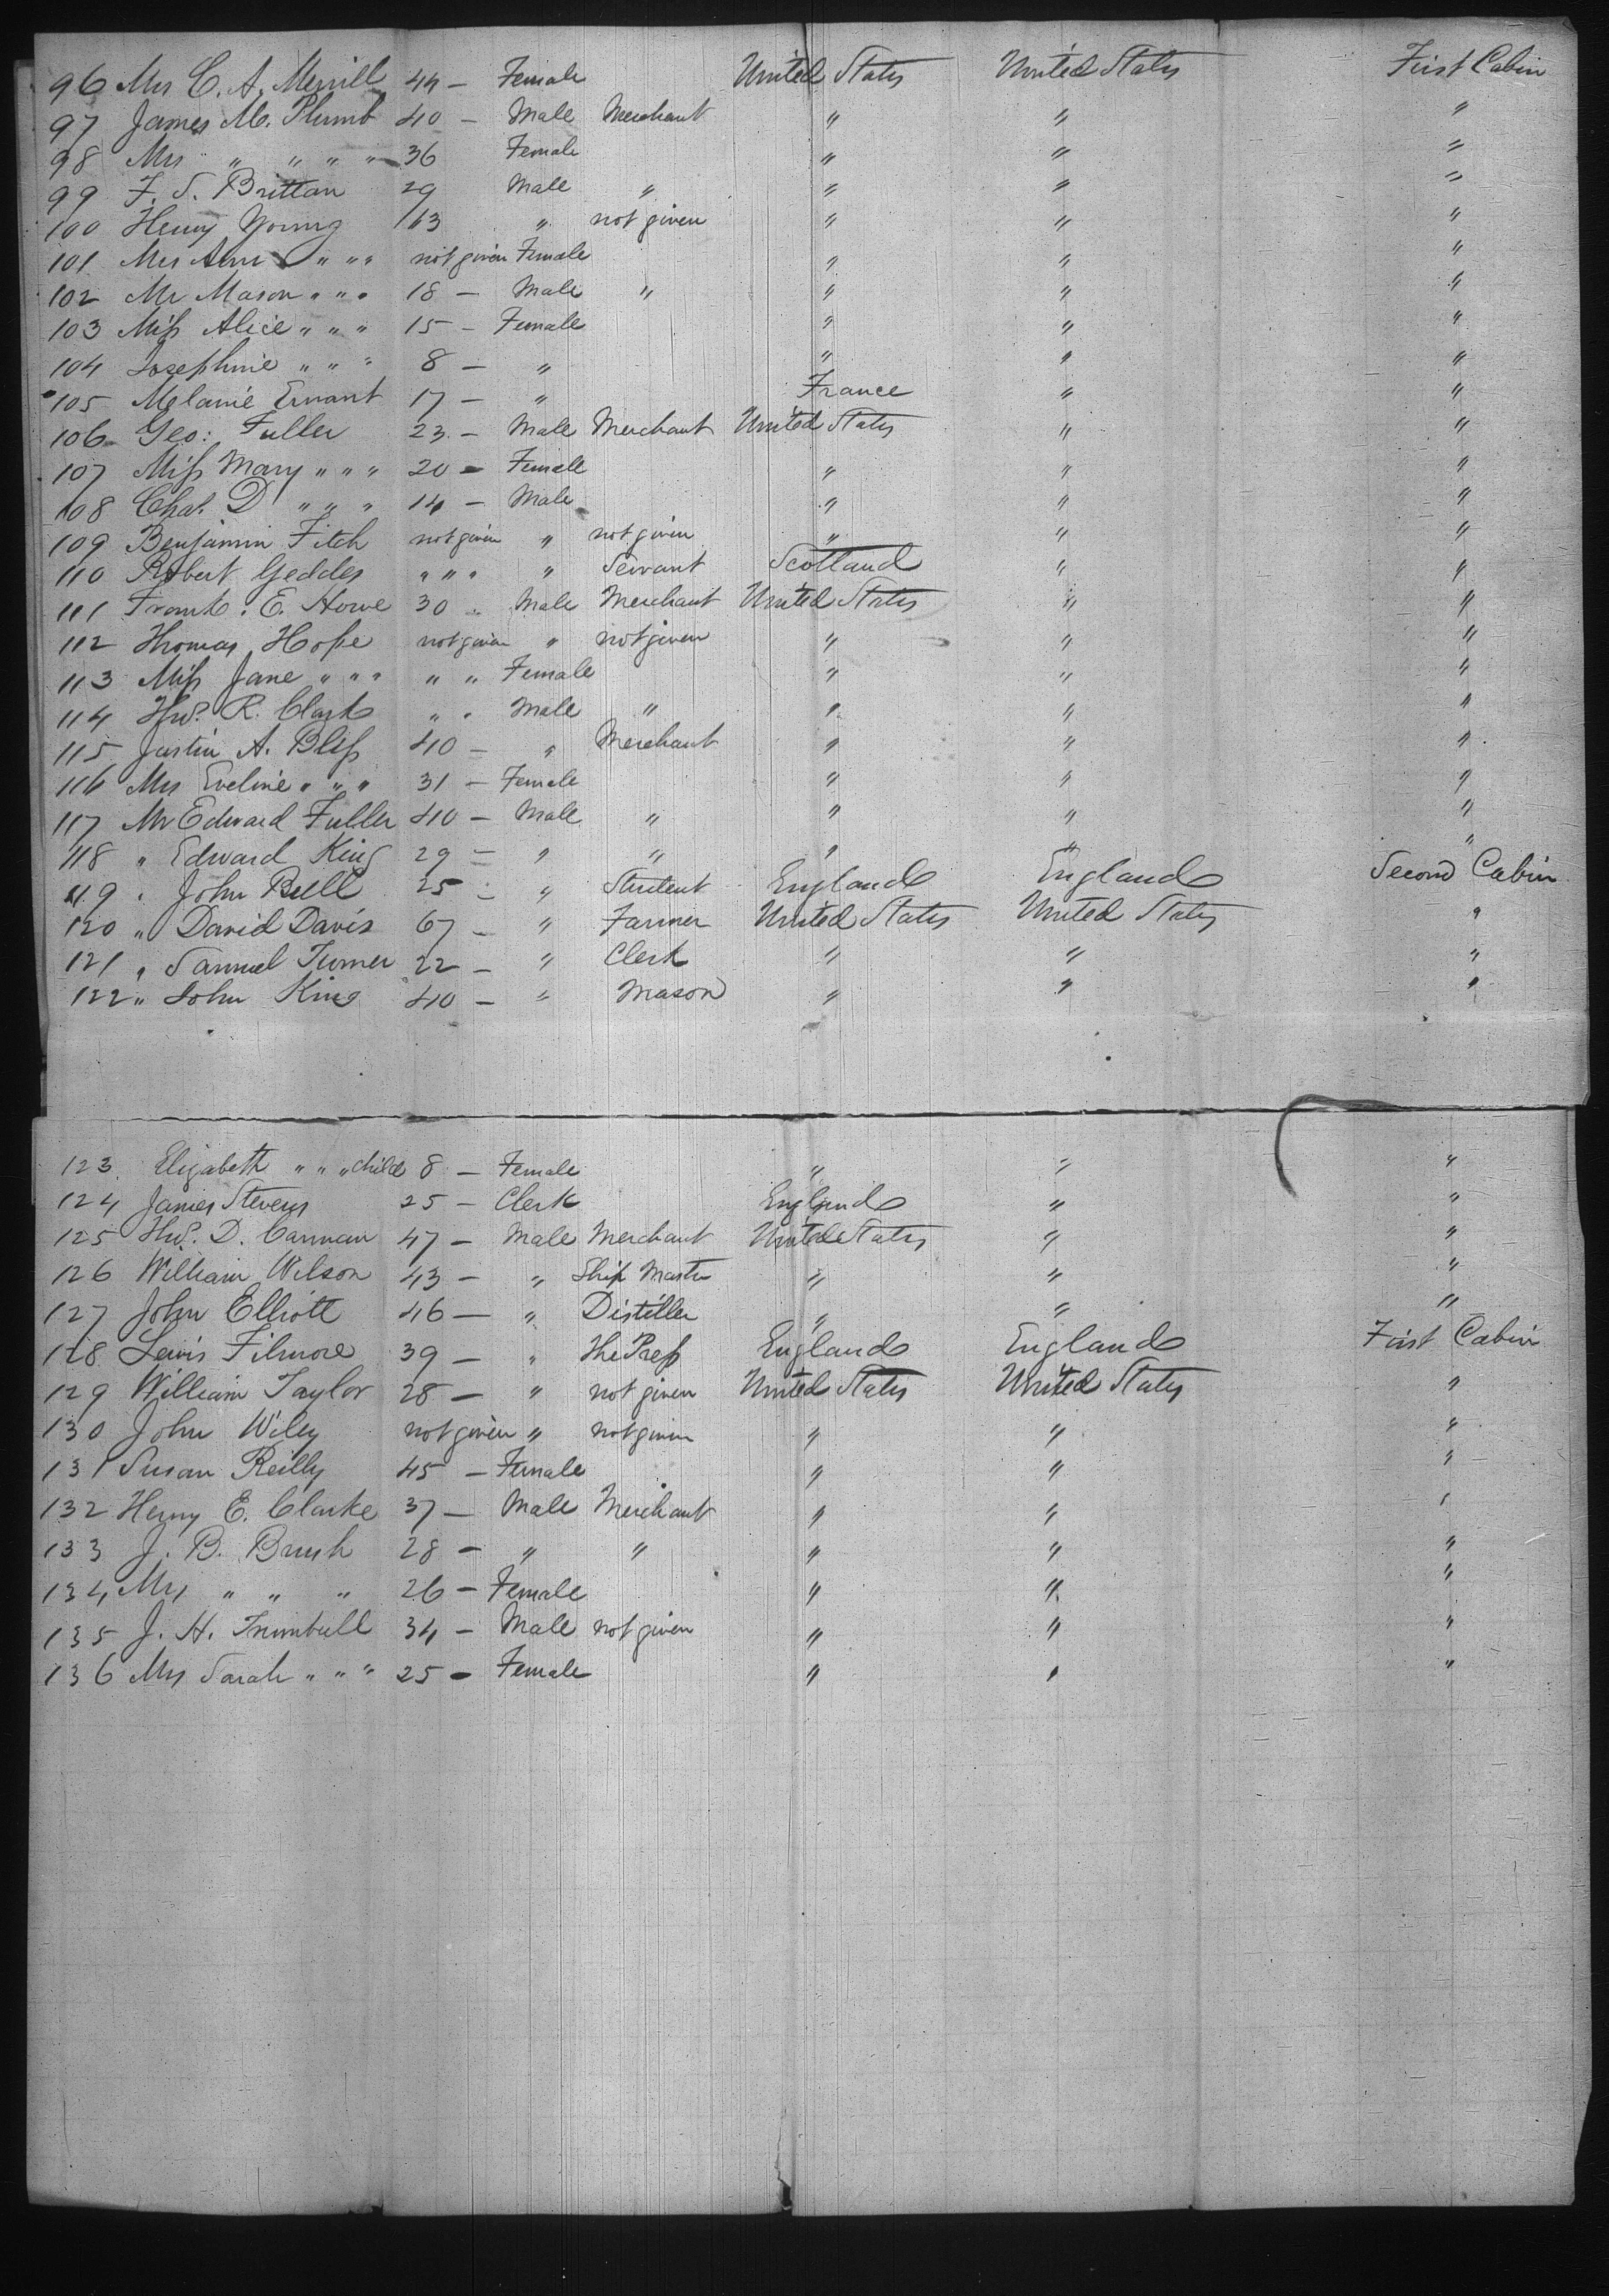 96 Mrs C. A. Merrill 44 — Female United States United States First Cabin
97 James M. Plumb 40 — Male Merchant " " "
98 Mrs " " " " 36 Female " " "
99 F. S. Brittan 29 Male " " " "
100 Henry Young 63 " not given " " "
101 Mrs Ann " " " not given Female " " "
102 Mr Mason " " " 18 — Male " " " "
103 Miss Alice " " " 15 — Female " " "
104 Josephine " " " 8 — " " " "
105 Melanie 17 — " France " "
106 Geo: Fuller 23 — Male Merchant United States " "
107 Miss Mary " " " 20 — Female " " "
108 Chas. D " " " 14 — Male " " "
109 Benjamin Fitch not given " not given " " "
110 Robert Geddes " " " " Servant Scotland " "
111 Frank. E. Howe 30 " Male Merchant United States " "
112 Thomas Hope not given " not given " " "
113 Miss Jane " " " " " Female " " "
114 R. Clark " " Male " " " "
115 Justin A. Bliss 40 — " Merchant " " "
116 Mrs Eveline " " " 31 — Female " " "
117 Mr Edward Fuller 40 — Male " " " "
118 " Edward King 29 — " " " " "
119 " John Bull 25 — " Student England England Second Cabin
120 " David Davis 67 — " Farmer United States United States "
121 " Samuel Turner 22 — " Clerk " " "
122 " John King 40 — " Mason " " "
123. Elizabeth " " " child 8 — Female " " "
124 James Stevens 25 — Clerk England " "
125 D. Carman 47 — Male Merchant United States " "
126 William Wilson 43 — " Ship Master " " "
127 John Elliott 46 — " Distiller " " "
128 Lewis Filmore 39 — " The Press England England First Cabin
129 William Taylor 28 — " not given United States United States "
130 John Wiley not given " not given " " "
131 Susan Reilly 45 — Female " " "
132 Henry E. Clarke 37 — Male Merchant " " "
133 J. B. Brush 28 — " " " " "
134 Mrs " " " 26 — Female " " "
135 J. H. Trumbull 34 — Male not given " " "
136 Mrs Sarah " " " 25 — Female " " "